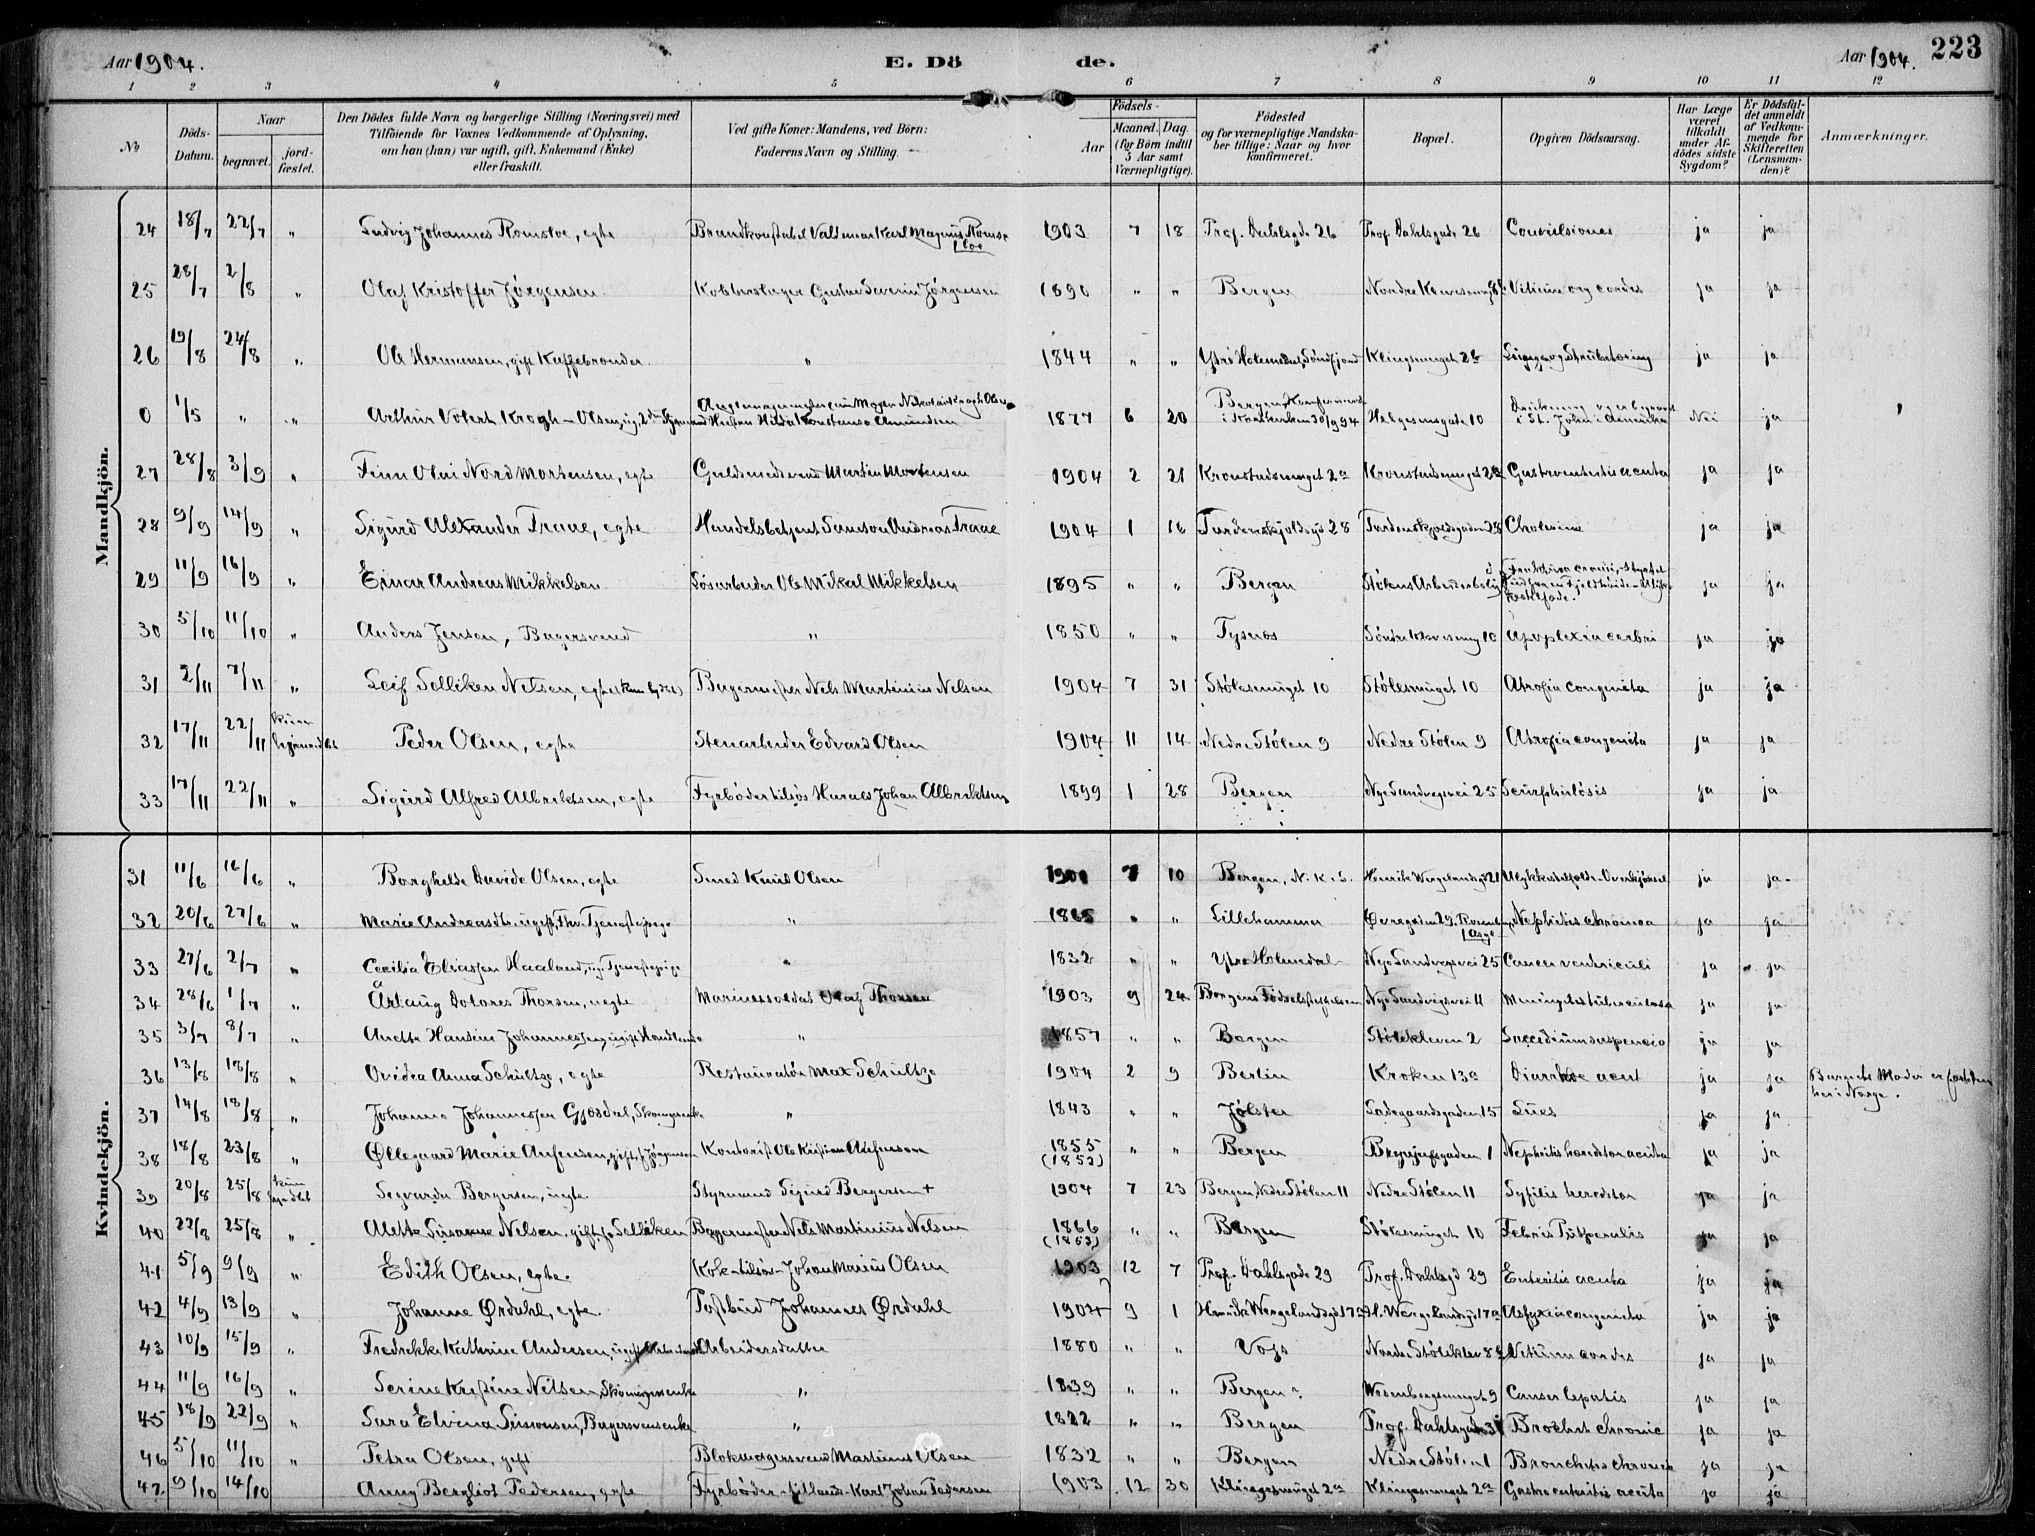 Aar 1904. E. Dö de. Aar 1904. 223
1 2 3 4 5 6 7 8 9 10 11 12
No
Döds-Datum.
Naar
begravet. jord-fæstet.
Den Dödes fulde Navn og borgerlige Stilling (Næringsvei) med
Tilföiende for Voxnes Vedkommende af Oplysning,
om han (hun) var ugift, gift, Enkemand (Enke)
eller fraskilt.
Ved gifte Koner: Mandens, ved Börn:
Faderens Navn og Stilling.
Födsels-
Aar Maaned. Dag.
(for Börn indtil
5 Aar samt
Værnepligtige).
Födested
og for værnepligtige Mandska-
ber tillige: Naar og hvor
konfirmeret.
Bopæl.
Opgiven Dödsaarsag.
Har Læge
været
tilkaldt
under Af-
dödes sidste
Sygdom?
Er Dödsfal-
det anmeldt
af Vedkom-
mende for
Skifteretten
(Lensman-
den)?
Anmærkninger.
Mandkjön.
24 18/7 22/7 " Ludvig Johannes Romsloe, egte Brandkonstabel Valdemar Karl Magnus Romsloe 1903 7 18 Prof. Dahlsgd. 26 Prof. Dahlsgade 26 Convulsiones ja ja
25 28/7 2/8 " Olaf Kristoffer Jörgensen Kobberslager Gustav Severin Jörgensen 1890 " " Bergen Vitium org cordis ja ja
26 19/8 24/8 " Ole Hermansen, gift Kaffebrænder " 1844 " " Ytre Holmedal, Söndfjord ja ja
0 1/5 " " Arthur Volert Krogh-Olsen, ug. 1877 6 20 Bergen, Konfirmeret Helgesensgate 10 i St. John i Amerika Nei ja
27 28/8 3/9 " Finn Olai Nord Mortensen, egte Guldsmedsvend Martin Mortensen 1904 2 21 Kronstadsmuget 2a Kronstadsmuget 2a Gastroenteritis acuta ja ja
28 9/9 14/9 " Sigurd Alexander Traae, egte Handelsbetjent Samson Andreas Traae 1904 1 16 Tordenskjoldsgd 28 Tordenskjoldsgaden 28 Cholerine ja ja
29 11/9 16/9 " Einar Andreas Mikkelsen Lösarbeider Ole Mikal Mikkelsen 1895 " " Bergen Stölens Arbeiderbolig ja ja
30 5/10 11/10 " Anders Jensen, Bagersvend " 1850 " " Tysnes 10 Apoplexia cerbri ja ja
31 2/11 7/11 " Leif Selliken Nelsen, egte Bagermester Nels Martinius Nelsen 1904 7 31 Stölesmuget 10 Stölesmuget 10 Atrofia congenita ja ja
32 17/11 22/11 Peder Olsen, egte Stenarbeider Edvard Olsen 1904 11 14 Nedre Stölen 9 Nedre Stölen 9 Atrofia congenita ja ja
33 17/11 22/11 " Sigurd Alfred Albriktsen, egte Fyrböder tilsjös Harals Johan Albriktsen 1899 1 28 Bergen Nye Sandvigsvei 25 ja ja
Kvindekjön.
31 11/6 16/6 " Borghilde Davide Olsen, egte Smed Knud Olsen 7 10 Bergen, N. K. S. Ulykkestilfælde. Overkjörsel ja ja
32 20/6 27/6 " Marie Andreasdtr. ugift " 1865 " " Lillehammer Øvregaden 29 Nephritis chronica ja ja
33 27/6 2/7 " Cecilia Eliassen Haaland, ug. Tjenestepige " 1832 " " Ytre Holmedal Nye Sandvigsvei 25 Cancer ventriculi ja ja
34 28/6 1/7 " Årlaug Dolores Thorsen, uegte Marinesoldat Olaf Thorsen 1903 9 24 Bergens Födselsstiftelsen Nye Sandvigsvei 11 ja ja
35 3/7 8/7 " Anetta Hansine Johannessen, ugift " 1857 " " Bergen Stölekleven 2 ja ja
36 13/8 18/8 " Ovidea Anna Schultze, egte Restauratör Max Schultze 1904 2 9 Berlin Kroken 13a Diarrhöe acut ja ja Barnets Moder er født her i Norge.
37 14/8 18/8 " Johanna Johannessen Gjösdal, " 1843 " " Jölster Ladegaardsgaden 15 Lues ja ja
38 18/8 23/8 " Øllegaard Marie Anfinsen, gift, f. Jörgensen Kontorist Ole Kristian Anfinsen 1855 (1852) " " Bergen 1 ja ja
39 20/8 25/8 Segvarda Bergersen, uegte Styrmand Sigurd Bergersen + 1904 7 23 Bergen, Nedre Stölen 11 Nedre Stölen 11 Syfilis hereditar ja ja
40 22/8 25/8 " Alette Susanne Nelsen, gift f. Selliken Bagermester Nels Martinius Nelsen 1866 (1853) " " Bergen Stölesmuget 10 Febris Puerperalis ja ja
41 5/9 9/9 " Edith Olsen, egte. Kok-tilsös-Johan Marius Olsen 1903 12 7 Prof. Dahlsgade 29 Prof. Dahlsgd 29 Enteritis acuta ja ja
42 4/9 13/9 " Johanne Ørdahl, egte. Postbud Johannes Ørdahl 1904 9 1 Henrik Wergelandsgd 17a H. Wergelandsgd 17a Asfyxia congenita ja ja
43 10/9 15/9 " Fredrekke Kathrine Andersen, ugift Arbeidersdatter 1880 " " Voss Vitium cordis ja ja
44 11/9 16/9 " Serine Kristine Nilsen, " 1839 " " Bergen 9 Canser hepatis ja ja
45 18/9 22/9 " Sara Elvina Sivonsen, Bagersvensenke " 1822 " " Bergen Prof. Dahlsgade Brochit chronic ja ja
46 5/10 11/10 " Petra Olsen, gift Blokmagersvend Martinus Olsen 1832 " " Bergen Nedre Stölen 1 Bronchitis chronica ja ja
47 9/10 14/10 " Anny Bergliot Pedersen, egte Fyrböder-tillands-Karl Johan Pedersen 1903 12 30 Klingesmuget 2a Klingesmuget 2a Gastro enteritis acuta ja ja